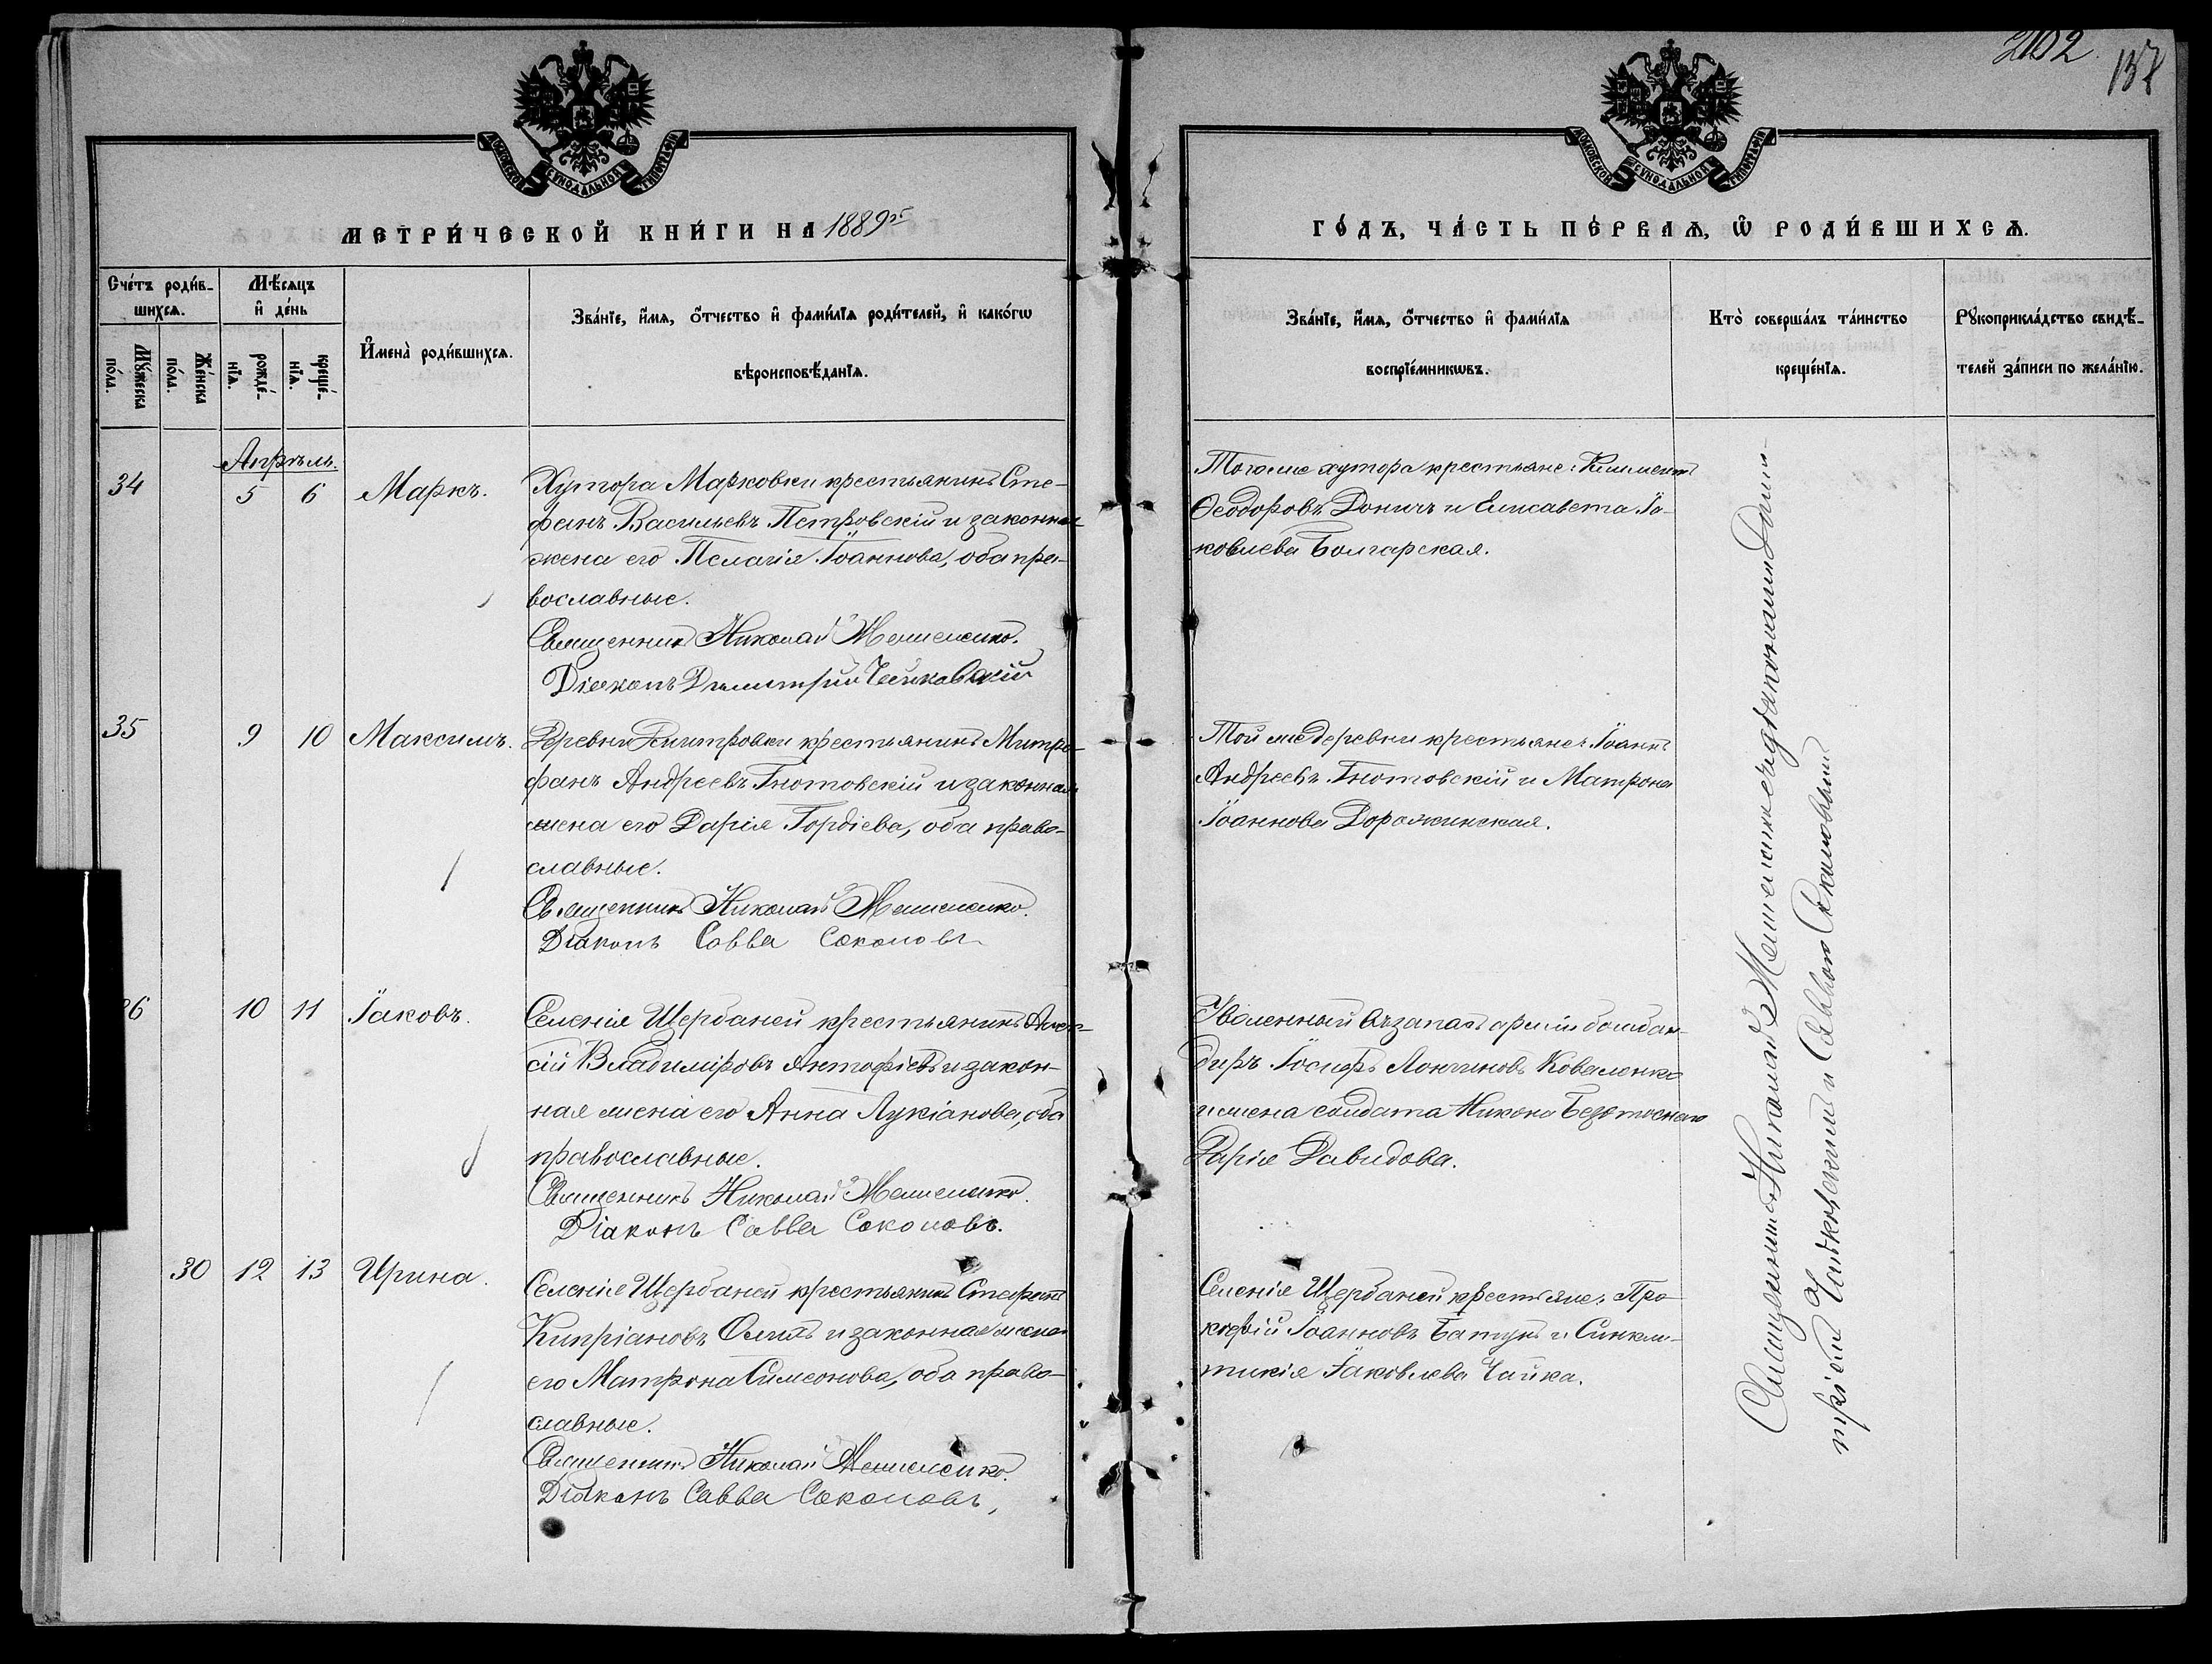 2102.
137
МОСКОВСКОЙ СУНОДАЛЬНОЙ ТИПОГРАФІИ
МОСКОВСКОЙ СУНОДАЛЬНОЙ ТИПОГРАФІИ
МЕТРИ́ЧЕСКОЙ КНИ́ГИ НА 1889й
ГО́ДЪ, ЧА́СТЬ ПЕ́РВАѦ, Ѿ РОДИ́ВШИХСѦ.
Сче́тъ роди́в-
шихсѧ.
Мꙋ́жеска
по́ла.
Же́нска
по́ла.
Мѣ́сѧцъ
и҆ де́нь
рожде́-
нїѧ.
креще́-
нїѧ.
И҆мена̀ роди́вшихсѧ.
Зва́нїе, и҆́мѧ, ѻ҆́тчество и҆ фами́лїѧ роди́телей, и҆ како́гѡ
вѣроисповѣ́данїѧ.
Зва́нїе, и҆́мѧ, ѻ҆́тчество и҆ фами́лїѧ
воспрїе́мникѡвъ.
Кто̀ соверша́лъ та́инство
креще́нїѧ.
Рꙋкоприкла́дство свидѣ́-
телей за́писи по жела́нїю.
Апрѣль.
34 5 6 Маркъ.
Хутора Марковки крестьянинъ Сте-
фанъ Васильевъ Петровскій и законная
жена его Пелагія Іоаннова, оба пра-
вославные.
Священникъ Николай
Діаконъ Димитрій
Того же хутора крестьяне: Климентъ
Ѳеодоровъ Доничъ и Елисавета Іа-
ковлева Болгарская.
35 9 10 Максимъ.
Деревни Дмитровки крестьянинъ Митро-
фанъ Андреевъ Гнотовскій и законная
жена его Дарія Гордіева, оба право-
славные.
Священникъ Николай
Діаконъ Савва Соколовъ
Той же деревни крестьяне: Іоаннъ
Андреевъ Гнотовскій и Матрона
Іоаннова Дорожинская.
36 10 11 Іаковъ.
Селенія Щербаней крестьянинъ Алек-
сій Владиміровъ Антофіевъ и закон-
ная жена его Анна Лукіанова, оба
православные.
Священникъ Николай
Діаконъ Савва Соколовъ.
Уволенный въ запасъ арміи бомбар-
диръ Іосифъ Лонгиновъ Коваленко
и жена солдата Никона
Дарія Давидова.
30 12 13 Ирина.
Селенія Щербаней крестьянинъ Стефанъ
Кипріановъ и законная жена
его Матрона Симеонова, оба право-
славные.
Священникъ Николай
Діаконъ Савва Соколовъ,
Селенія Щербаней крестьяне: Про-
кофій Іоанновъ Батунъ и Синкли-
тикія Іаковлева Чайка.
Священникъ Николай съ діаконами Дими-
тріемъ и Саввою Соколовымъ